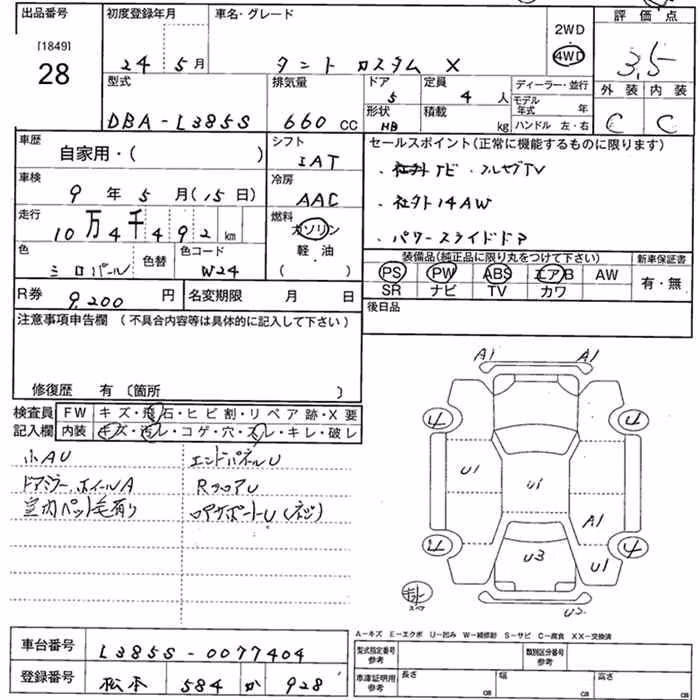 出品番号
[1849]
28
初度登録年月
24 5月
車名・グレード
タント カスタム X
2WD
4WD
評価点
3,5
外装 内装
C C
型式
DBA-L385S
排気量
660 CC
ドア
5
形状
HB
定員
4 人
積載
kg
ディーラー・並行
モデル年式 年
ハンドル 左・右
車歴
自家用・( )
シフト
IAT
車検
9 年 5 月(15日)
冷房
AAC
走行
10万4千492 km
燃料
ガソリン
軽油
( )
色
ミロパール
色替
色コード
W24
R券
9,200 円
名変期限 月 日
セールスポイント(正常に機能するものに限ります)
・社外ナビ・フルセグTV
・社外14AW
・パワースライドドア
装備品(純正品に限り丸をつけて下さい)
新車保証書
PS PW ABS エアB AW
SR ナビ TV カワ
有・無
後日品
注意事項申告欄(不具合内容等は具体的に記入して下さい)
修復歴 有〔箇所 〕
検査員
記入欄
FW キズ・飛石・ヒビ割・リペア跡・X要
内装 キズ・汚レ・コゲ・穴・スレ・キレ・破レ
小AU
ドアミラー、ホイールA
室内ペット毛有り
エンドパネルU
RフロアU
コアサポートU(ネジ)
A1 A1
4 4
U1 U1
A1
U3 U1
4 4
U2
A-キズ E-エクボ U-凹み W-補修跡 S-サビ C-腐食 XX-交換済
車台番号
L385S-0077404
登録番号
松本 584 か 928
型式指定番号
参考
類別区分番号
参考
車庫証明用
参考
長さ cm
幅 cm
高さ cm